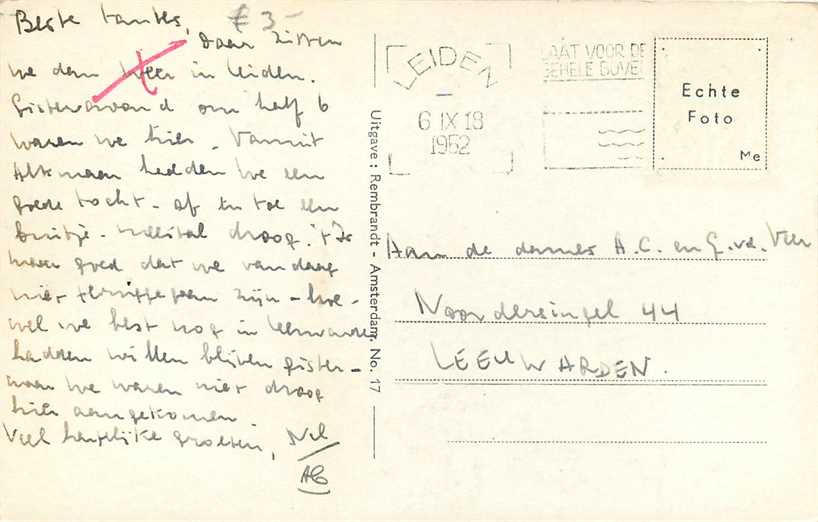 Beste tantes, € 3-
Daar zitten
we dan weer in Leiden.
Gisteravond om half 6
waren we hier. Vanuit
Alkmaar hadden we een
goede tocht - af en toe een
buitje - meestal droog. 't Is
maar goed dat we vandaag
niet teruggegaan zijn - hoe-
wel we best nog in Leeuwarden
hadden willen blijven gister-
maar we waren niet droog
hier aangekomen.
Veel hartelijke groeten, Nel
/
AB
Uitgave: Rembrandt - Amsterdam. No. 17
LEIDEN
6 IX 18
1952
LAAT VOOR DE
GEHELE
Echte
Foto
Me
Aan de dames A.C. en G. v.d. Veer
Noordersingel 44
LEEUWARDEN.